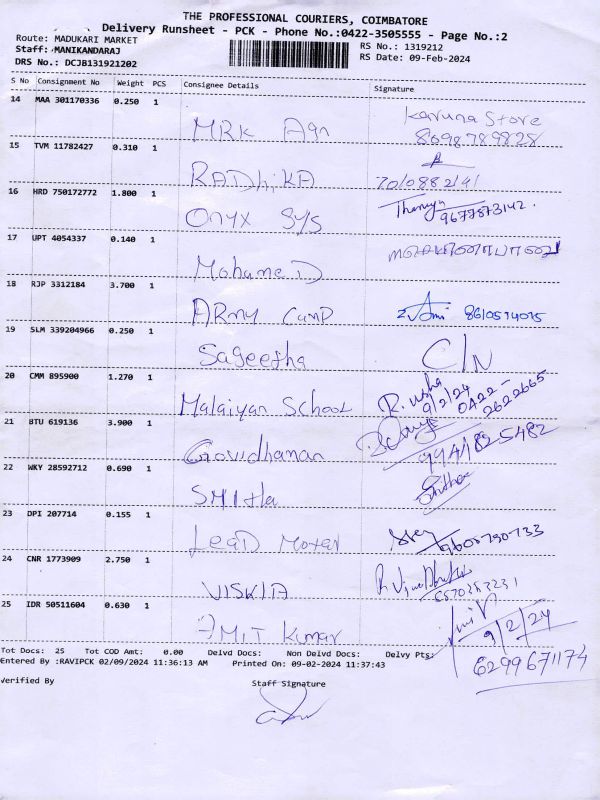 THE PROFESSIONAL COURIERS, COIMBATORE
Delivery Runsheet - PCK - Phone No.:0422-3505555 - Page No.:2
Route: MADUKARI MARKET
RS No.: 1319212
Staff: MANIKANDARAJ
RS Date: 09-Feb-2024
DRS No.: DCJB131921202
S No Consignment No Weight PCS Consignee Details Signature
14 MAA 301170336 0.250 1
MRK Agn
Karuna Store
8698789828
15 TVM 11782427 0.310 1
RADhiKA
16 HRD 750172772 1.800 1
Onyx Sys
9677873142.
17 UPT 4054337 0.140 1
Mohame D
18 RJP 3312184 3.700 1
ARmy Camp
19 SLM 339204966 0.250 1
Sageetha
C/N
20 CMM 895900 1.270 1
Malaiyan School
R. usha
9/2/24
0422-
2622665
21 BTU 619136 3.900 1
Govidhaman
9944825482
22 WKY 28592712 0.690 1
SMItha
23 DPI 207714 0.155 1
LeaD Motar
9600790733
24 CNR 1773909 2.750 1
VISKIA
25 IDR 50511604 0.630 1
AMIT Kumar
9/2/24
6299671174
Tot Docs: 25 Tot COD Amt: 0.00 Delvd Docs: Non Delvd Docs: Delvy Pts:
Entered By :RAVIPCK 02/09/2024 11:36:13 AM Printed On: 09-02-2024 11:37:43
Verified By Staff Signature